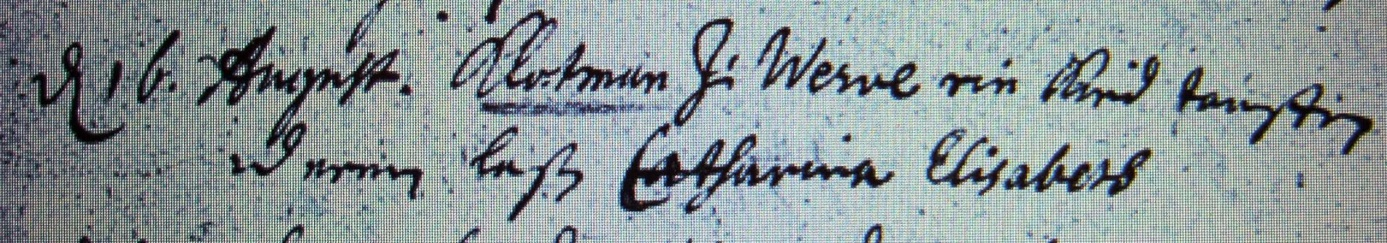 d 16. August. Klotman Zu Werve ein Kind tauffen
und nennen laßen Catharina Elisabeth